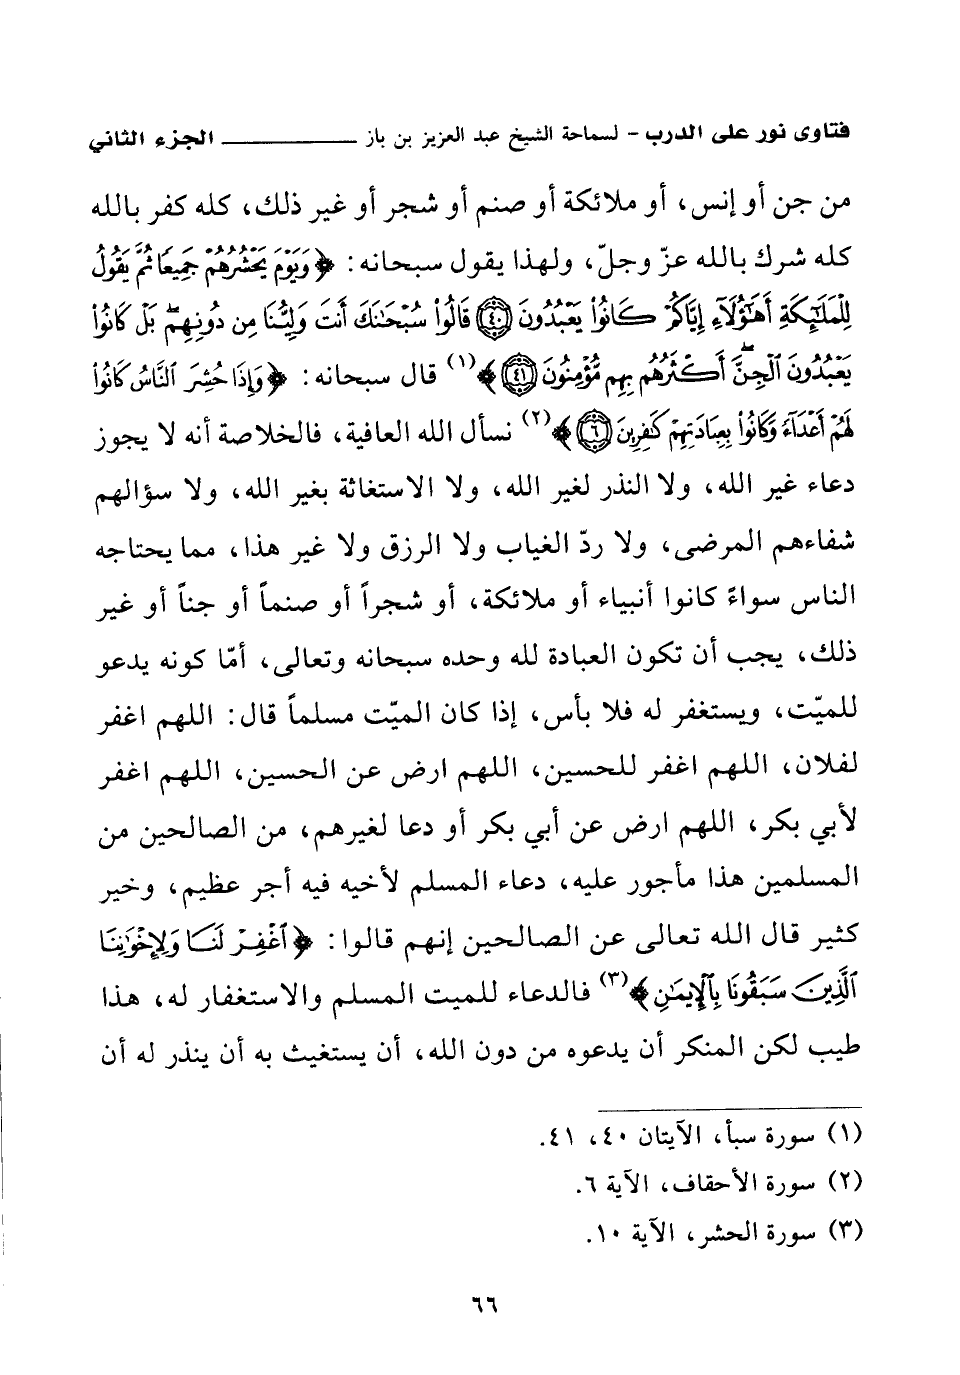 فتاوى نور على الدرب - لسماحة الشيخ عبد العزيز بن باز ـــــــــــ الجزء الثاني
من جن أو إنس، أو ملائكة أو صنم أو شجر أو غير ذلك، كله كفر بالله
كله شرك بالله عزّ وجلّ، ولهذا يقول سبحانه: ﴿وَيَوْمَ يَحْشُرُهُمْ جَمِيعًا ثُمَّ يَقُولُ
لِلْمَلَٰٓئِكَةِ أَهَٰٓؤُلَآءِ إِيَّاكُمْ كَانُوا۟ يَعْبُدُونَ ﴿٤٠﴾ قَالُوا۟ سُبْحَٰنَكَ أَنتَ وَلِيُّنَا مِن دُونِهِم ۖ بَلْ كَانُوا۟
يَعْبُدُونَ ٱلْجِنَّ ۖ أَكْثَرُهُم بِهِم مُّؤْمِنُونَ ﴿٤١﴾﴾(١) قال سبحانه: ﴿وَإِذَا حُشِرَ ٱلنَّاسُ كَانُوا۟
لَهُمْ أَعْدَآءً وَكَانُوا۟ بِعِبَادَتِهِمْ كَٰفِرِينَ ﴿٦﴾﴾(٢) نسأل الله العافية، فالخلاصة أنه لا يجوز
دعاء غير الله، ولا النذر لغير الله، ولا الاستغاثة بغير الله، ولا سؤالهم
شفاءهم المرضى، ولا ردّ الغياب ولا الرزق ولا غير هذا، مما يحتاجه
الناس سواءً كانوا أنبياء أو ملائكة، أو شجراً أو صنماً أو جناً أو غير
ذلك، يجب أن تكون العبادة لله وحده سبحانه وتعالى، أمّا كونه يدعو
للميّت، ويستغفر له فلا بأس، إذا كان الميّت مسلماً قال: اللهم اغفر
لفلان، اللهم اغفر للحسين، اللهم ارض عن الحسين، اللهم اغفر
لأبي بكر، اللهم ارض عن أبي بكر أو دعا لغيرهم، من الصالحين من
المسلمين هذا مأجور عليه، دعاء المسلم لأخيه فيه أجر عظيم، وخير
كثير قال الله تعالى عن الصالحين إنهم قالوا: ﴿ٱغْفِرْ لَنَا وَلِإِخْوَٰنِنَا
ٱلَّذِينَ سَبَقُونَا بِٱلْإِيمَٰنِ﴾(٣) فالدعاء للميت المسلم والاستغفار له، هذا
طيب لكن المنكر أن يدعوه من دون الله، أن يستغيث به أن ينذر له أن
(١) سورة سبأ، الآيتان ٤٠، ٤١.
(٢) سورة الأحقاف، الآية ٦.
(٣) سورة الحشر، الآية ١٠.
٦٦